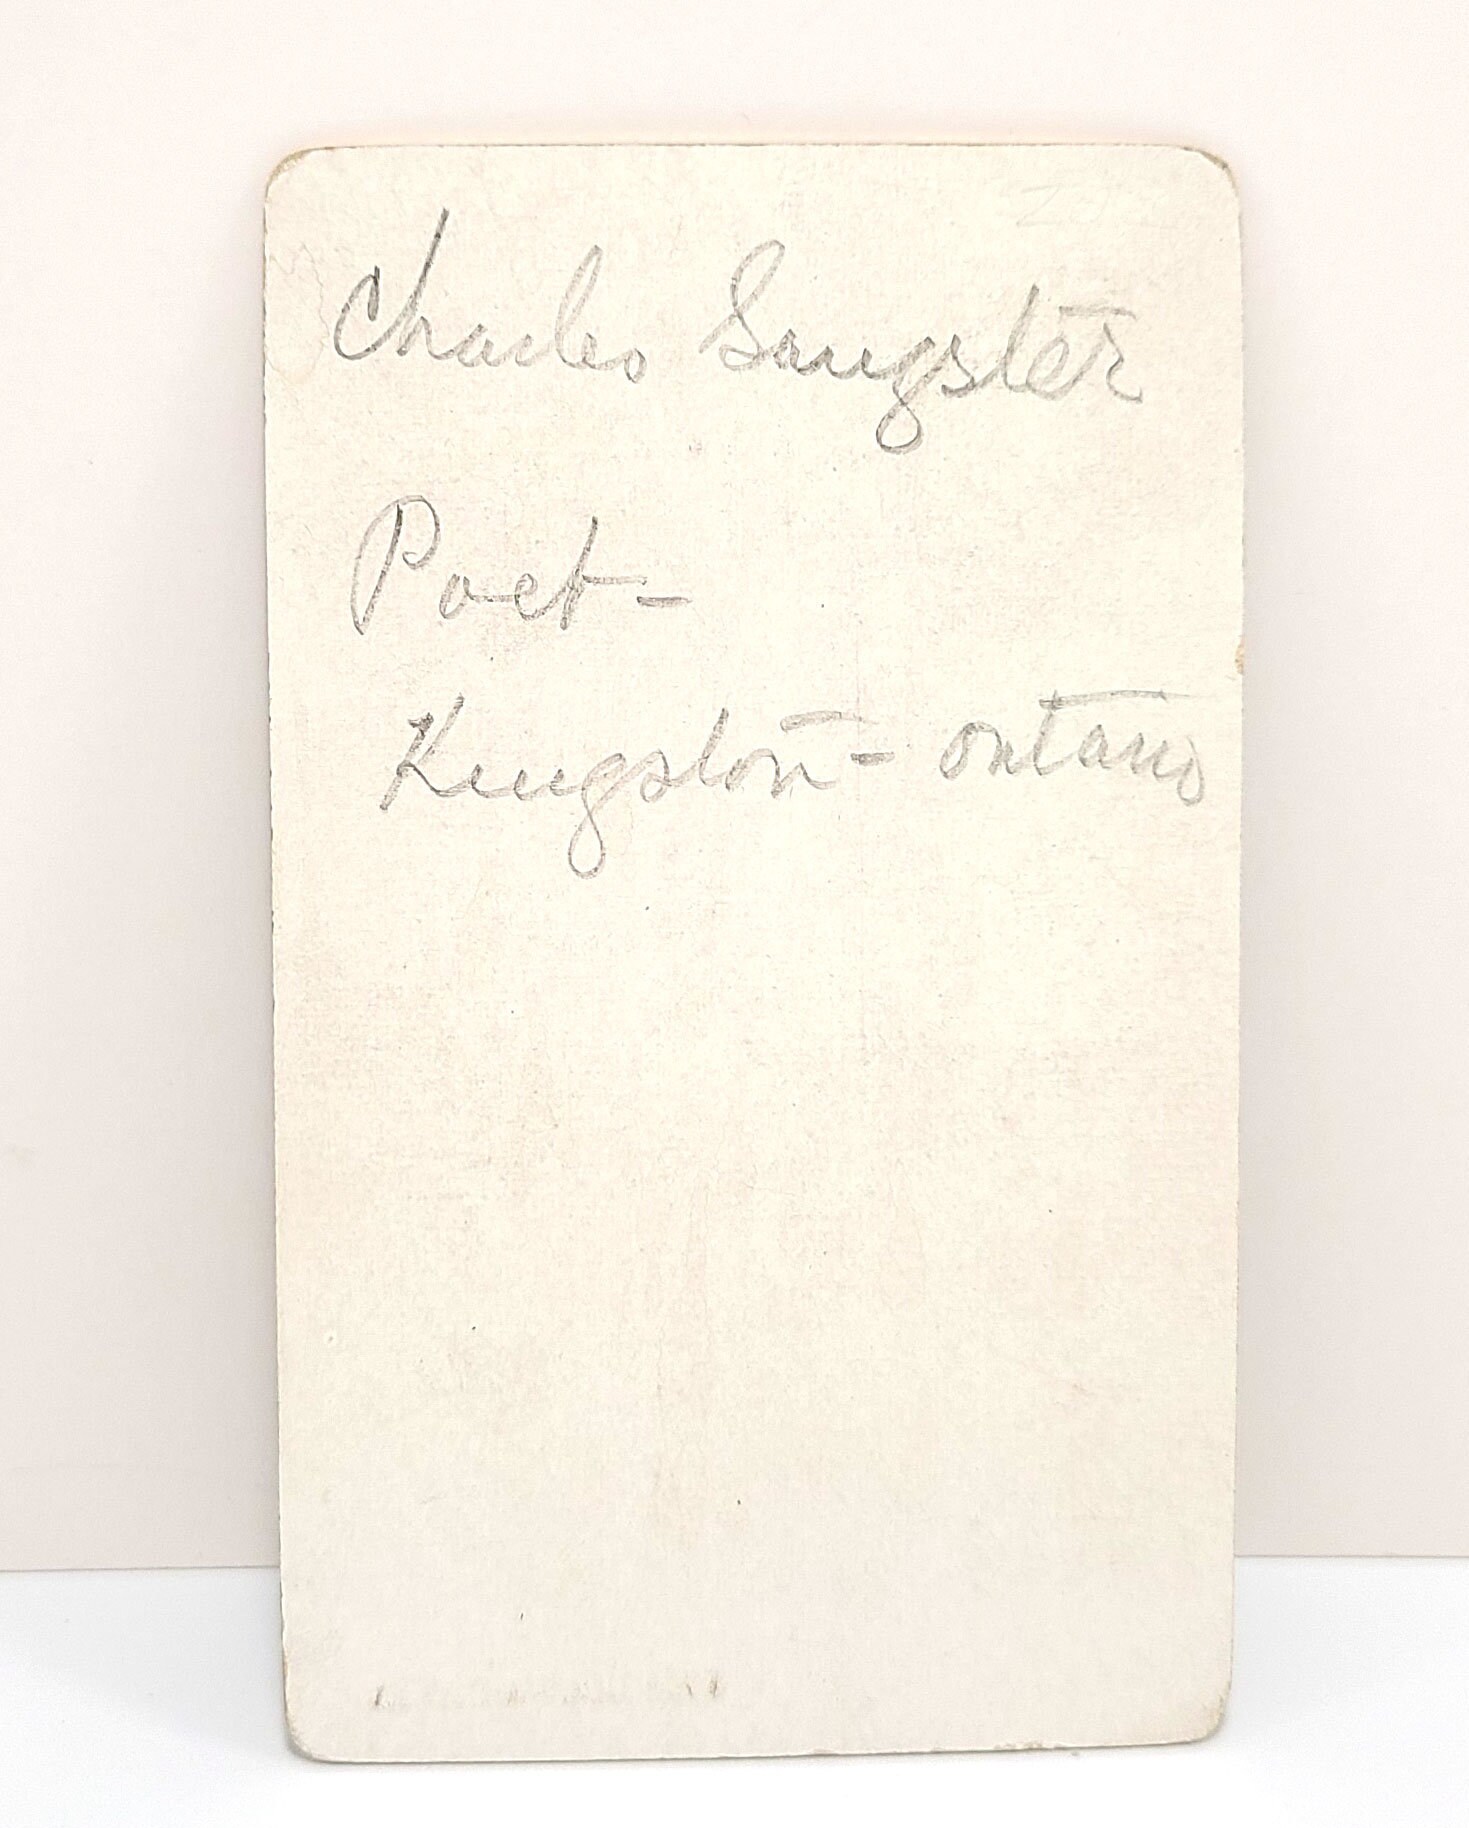 Charles Sangster
Poet -
Kingston - Ontario